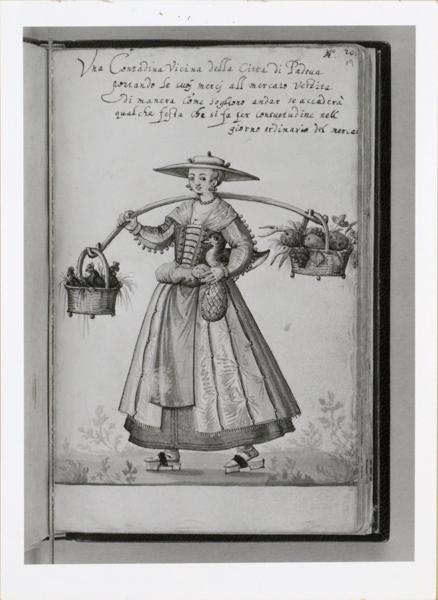 Nº 20.
19
Vna Contadina Vicina della Citta di Padoua
portando le sue merci all mercato Vestita
di manera come sogliono andar se accaderà
qualche festa che si fa per consuetudine nell
giorno ordinario del merca